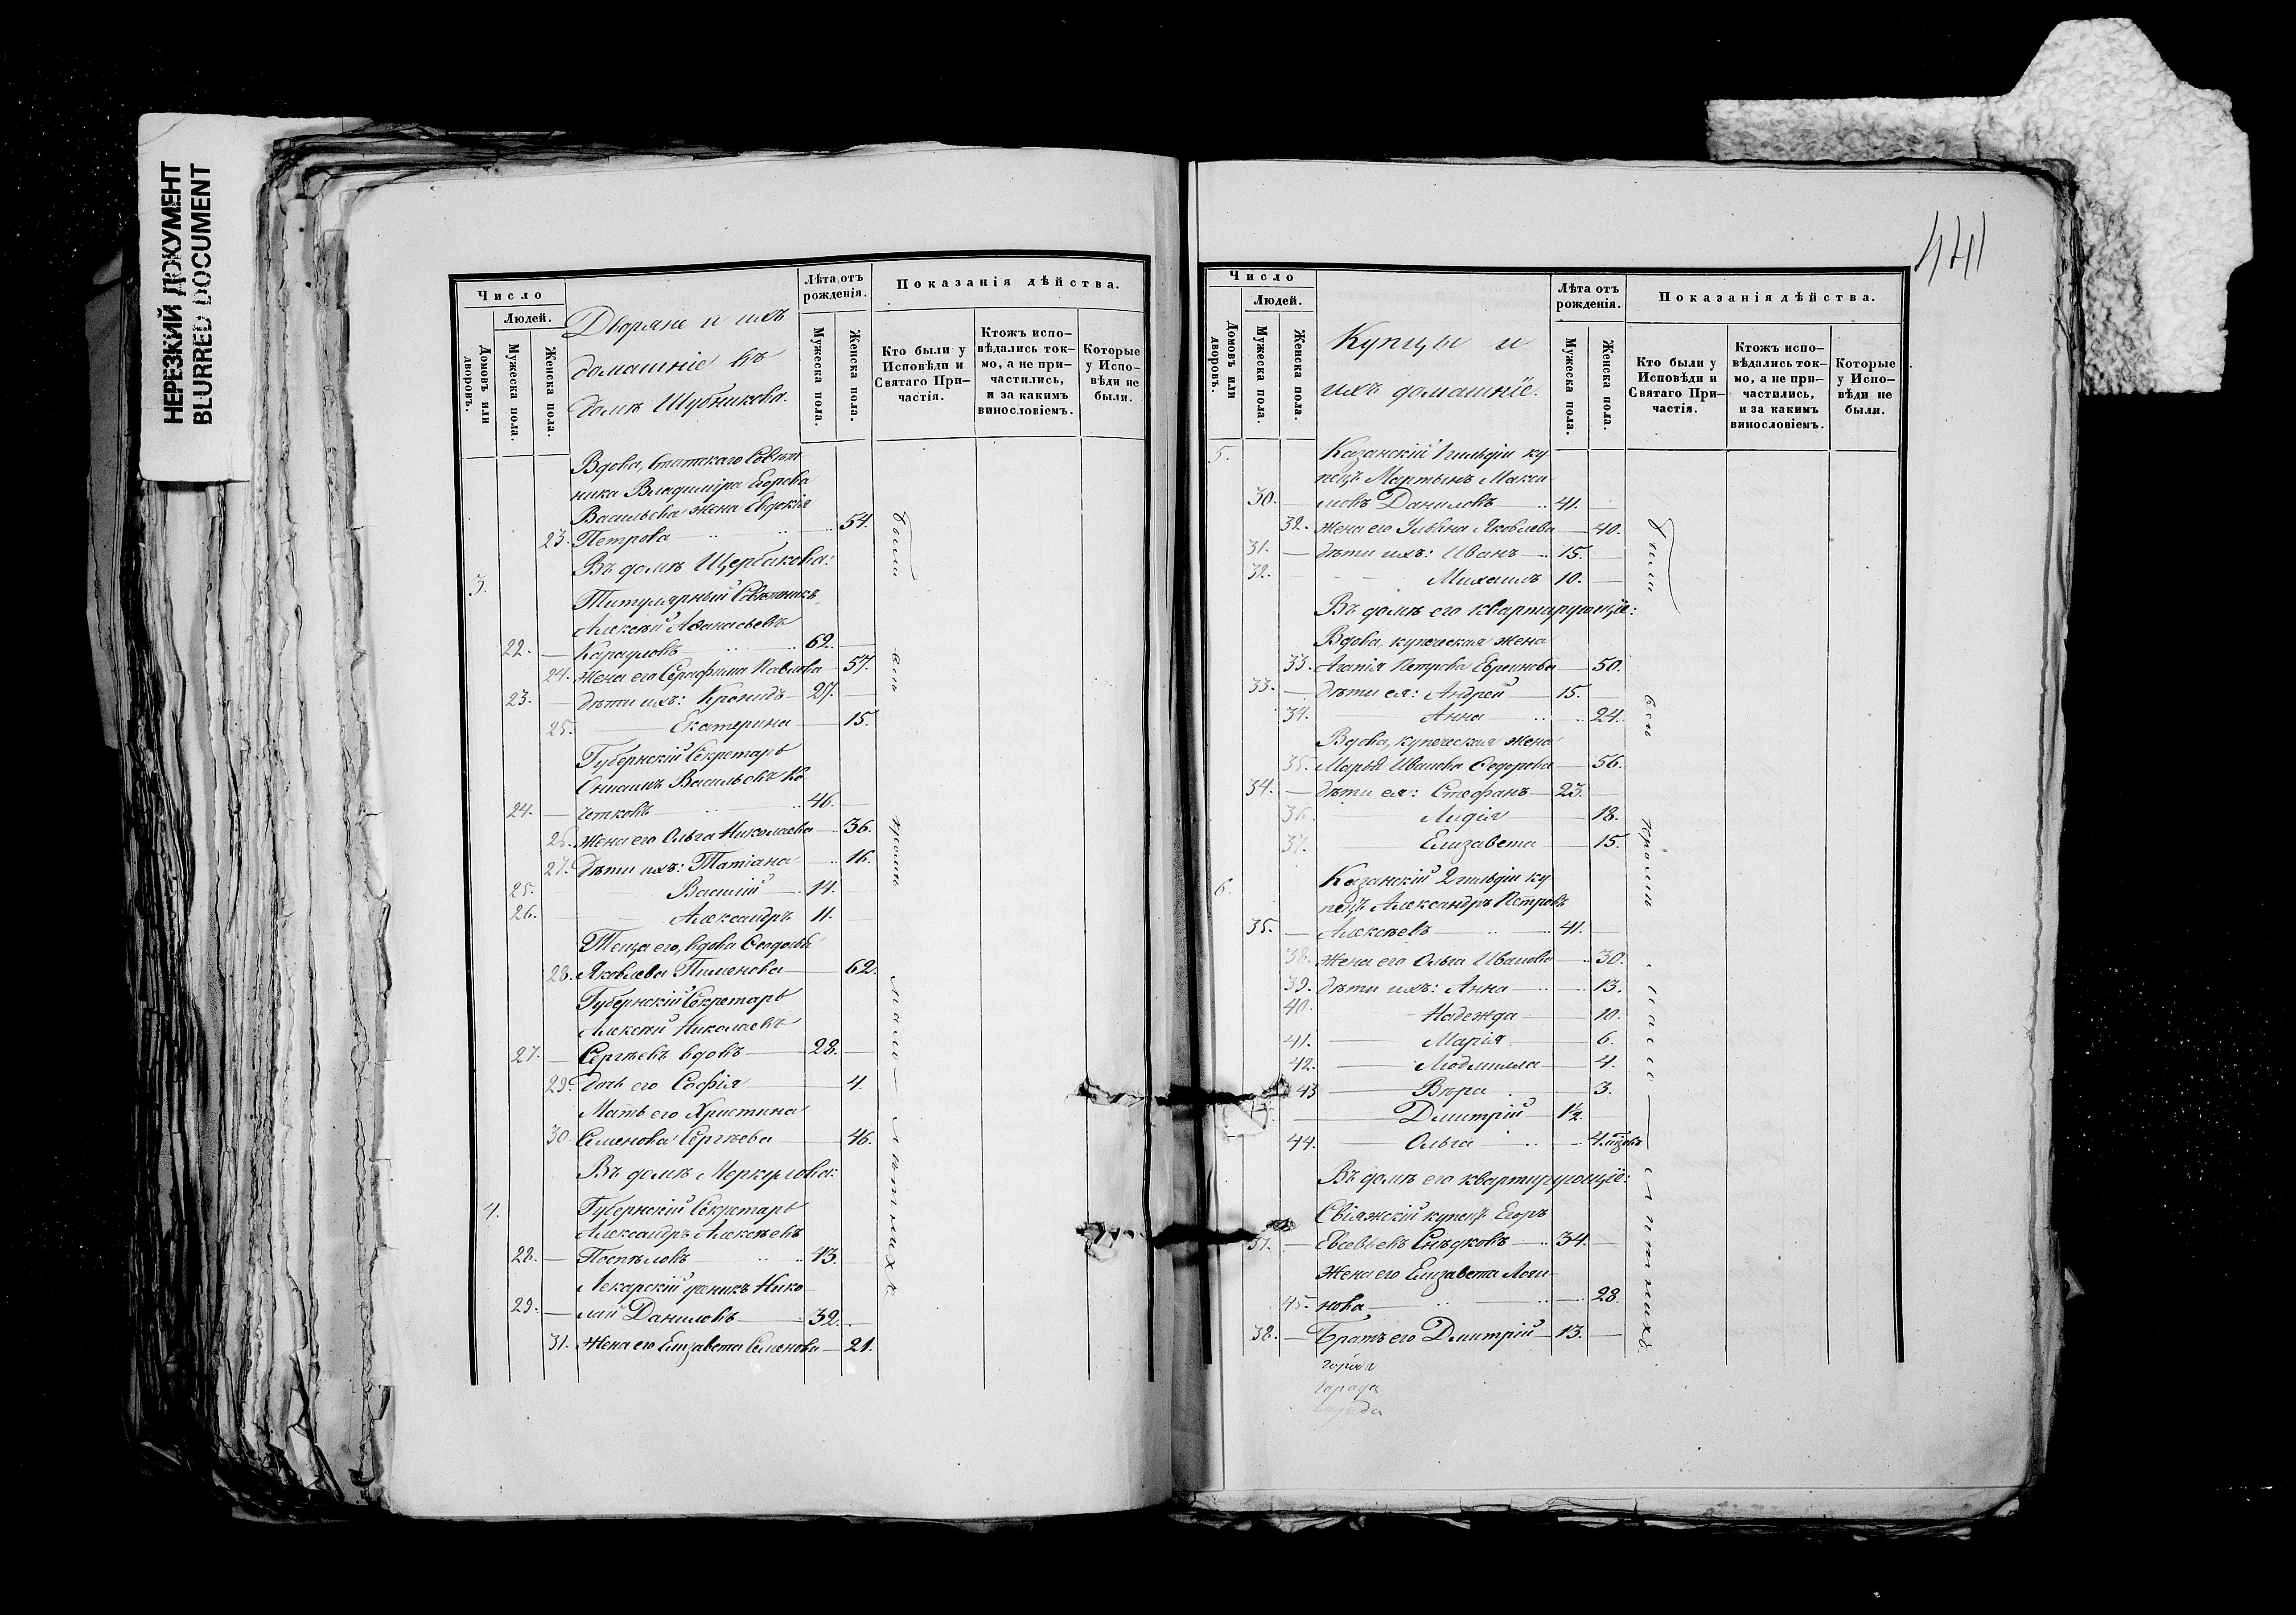 НЕРЕЗКИЙ ДОКУМЕНТ
BLURRED DOCUMENT
Число
Людей.
Домовъ или дворовъ.
Мужеска пола.
Женска пола.
Дворяне и ихъ
домашніе въ
домѣ Шубникова.
Лѣта отъ рожденія.
Мужеска пола.
Женска пола.
Показанія дѣйства.
Кто были у Исповѣди и Святаго Причастія.
Ктожъ исповѣдались токмо, а не причастились, и за какимъ винословіемъ.
Которые у Исповѣди не были.
Вдова, Статскаго Совѣт
ника Владиміра Егорова
Васильева жена Евдокія
23. Петрова 54.
Въ домѣ Щербакова:
3. Титулярный Совѣтникъ
Алексѣй Аѳанасьевъ
22. 62.
24. Жена его Серафима Павлова 57.
23. дѣти ихъ: Кронидъ 27.
25. Екатерина 15.
Губернскій Секретарь
Васильевъ Ко
24. четковъ 46.
26. Жена его Ольга Николаева 36.
27. дѣти ихъ: Татіана 16.
25. Василій 14.
26. Александръ 11.
Теща его, вдова
28. Яковлева Пименова 62.
Губернскій Секретарь
Алексѣй Николаевъ
27. Сергѣевъ вдовъ 28.
29. дочь его Софія 4.
Мать его Христина
30. Семенова Сергѣева 46.
Въ домѣ Меркулова:
4. Губернскій Секретарь
Александръ Алексѣевъ
28. Поспѣловъ 43.
Лекарскій ученикъ Нико
29. лай Даниловъ 32.
31. Жена его Елизавета Семенова 21.
были всѣ кромѣ малолѣтнихъ
441
Число
Людей.
Домовъ или дворовъ.
Мужеска пола.
Женска пола.
Купцы и
ихъ домашніе.
Лѣта отъ рожденія.
Мужеска пола.
Женска пола.
Показанія дѣйства.
Кто были у Исповѣди и Святаго Причастія.
Ктожъ исповѣдались токмо, а не причастились, и за какимъ винословіемъ.
Которые у Исповѣди не были.
5. Казанскій 1 гильдіи ку
пецъ Мартынъ Макси
30. мовъ Даниловъ 41.
32. Жена его Яковлева 40.
31. дѣти ихъ: Иванъ 15.
32. Михаилъ 10.
Въ домѣ его квартирующіе:
Вдова, купеческая жена
33. Агапія Петрова Евреинова 50.
33. дѣти ея: Андрей 15.
34. Анна 24.
Вдова, купеческая жена
35. Марья Иванова Ѳедорова 56.
34. дѣти ея: Стефанъ 23.
36. Лидія 18.
37. Елизавета 15.
6. Казанскій 2 гильдіи ку
пецъ Александръ Петровъ
35. Алексѣевъ 41.
38. Жена его Ольга Иванова 30.
39. дѣти ихъ: Анна 13.
40. Надежда 10.
41. Марія 6.
42. Людмила 4.
43 Вѣра 3.
Дмитрій 1½.
44. Ольга 4
Въ домѣ его квартирующіе:
Свіяжскій купецъ Егоръ
37. Евсевьевъ Снѣдковъ 34.
Жена его Елизавета Логи
45. нова 28.
38. Братъ его Дмитрій 13.
города
города
были всѣ кромѣ малолѣтнихъ.